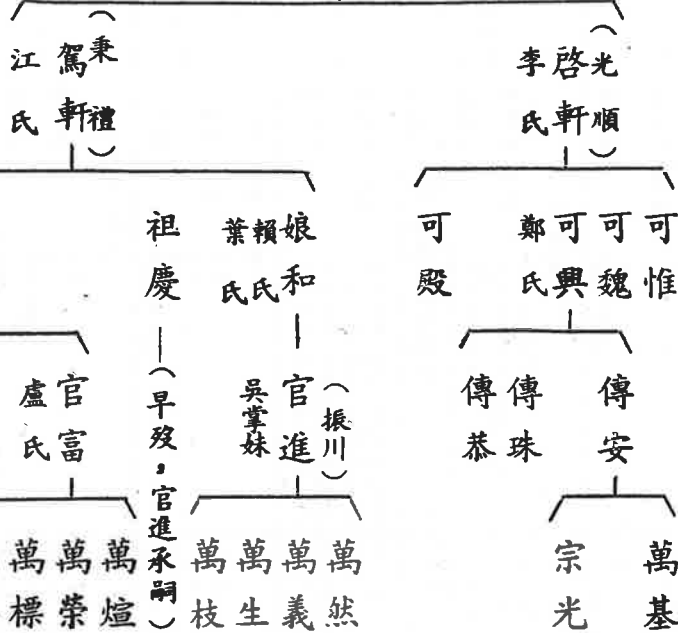 （光順）
啓軒
李氏
（秉禮）
駕軒
江氏
可惟
可魏
可興
鄭氏
可殿
娘和
賴氏
葉氏
祖慶
（早歿，官進承嗣）
傳安
傳珠
傳恭
（振川）
官進
吳掌妹
官富
盧氏
萬基
宗光
萬然
萬義
萬生
萬枝
萬煊
萬榮
萬標